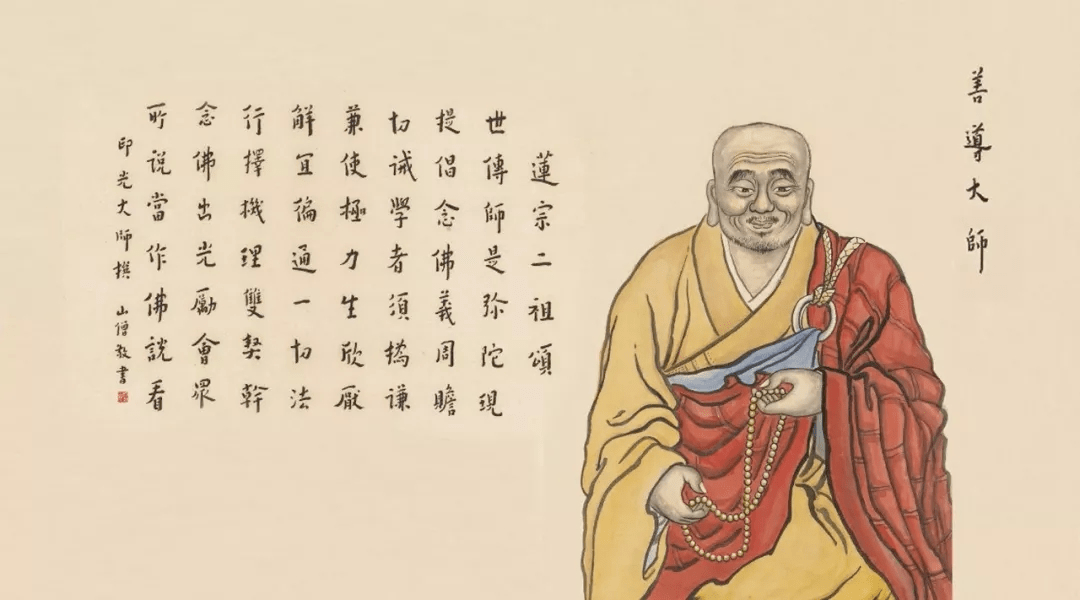 善導大師
蓮宗二祖頌
世傳師是弥陀現
提倡念佛義周贍
切诫學者須撝谦
兼使極力生欣厭
解宜徧通一切法
行擇機理雙契幹
念佛出光勵會眾
所說當作佛說看
印光大師撰 山僧敬書